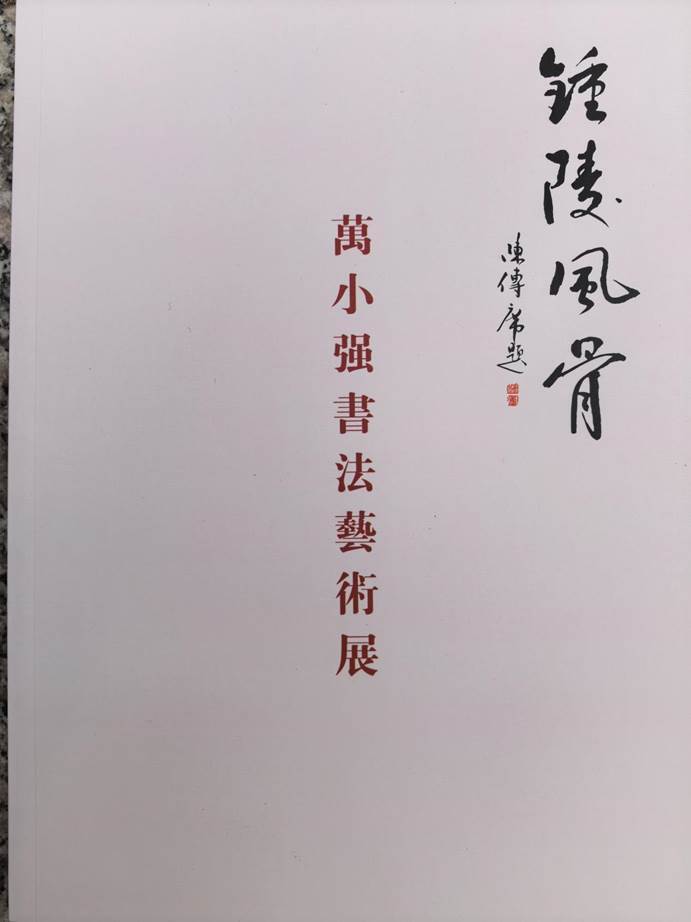 鍾陵風骨
陳傳席題
萬小强書法藝術展